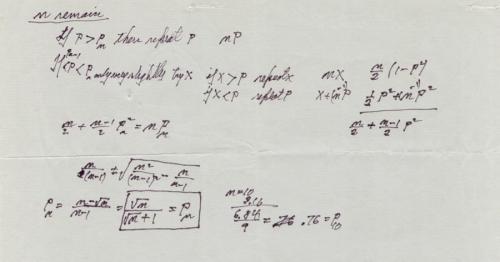 n remain
If P > Pₙ then repeat P nP
If P < Pₙ only very slightly try X if X > P repeat X nX n/2 (1-P²)
if X < P repeat P X + (n-1)P 1/2 P² + (n-1)P²
n/2 + n-1/2 Pₙ² = nPₙ n/2 + n-1/2 P²
n/(n-1) ± √n²/(n-1)² - n/n-1
Pₙ = n-√n/n-1 = √n/√n+1 = Pₙ
n=10
3.16
6.84/9 = .76 = P₁₀